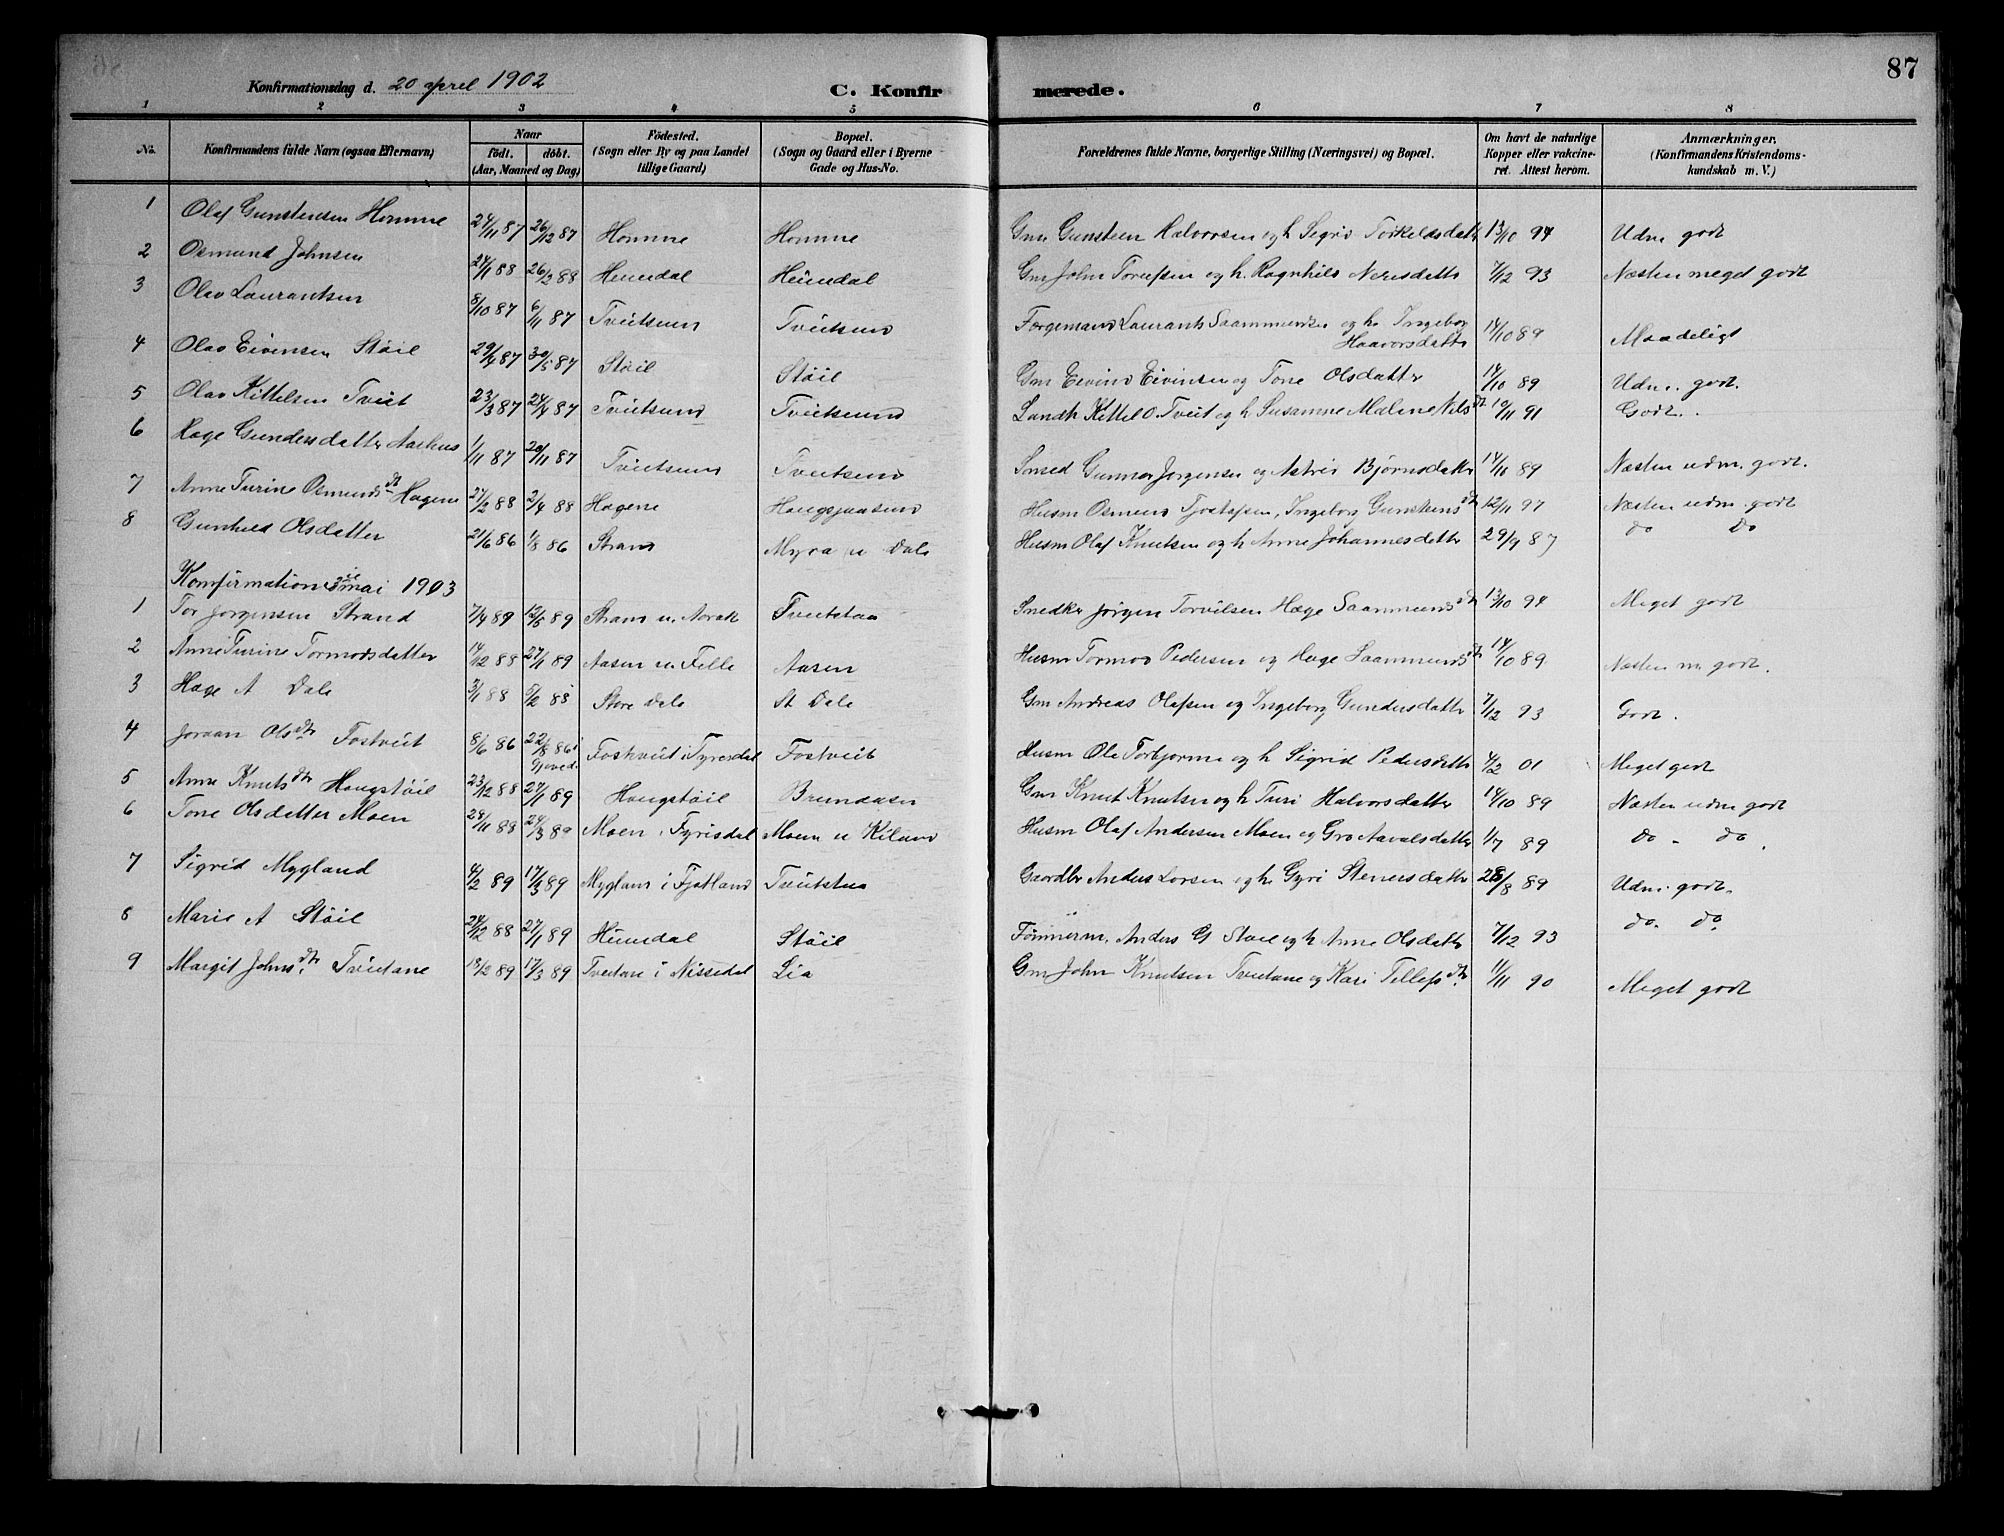 87
Konfirmationsdag d. 20 aprel 1902 C. Konfirmerede.
1 2 3 4 5 6 7 8
No. Konfirmandens fulde Navn (ogsaa Efternavn) Naar født. døbt. (Aar, Maaned og Dag) Fødested. (Sogn eller By og paa Landet tillige Gaard) Bopæl. (Sogn og Gaard eller i Byerne Gade og Hus-No.) Forældrenes fulde Navne, borgerlige Stilling (Næringsvei) og Bopæl. Om havt de naturlige Kopper eller vakcineret. Attest herom. Anmærkninger. (Konfirmandens Kristendomskundskab m. V.)
1 Olaf Gunstensen Homme 24/11 87 26/12 87 Homme Homme Gm Gunsteen Halvorsen og h Sigrid Torkeldsdatter 13/10 94 Udm godt
2 Osmund Johnsen 24/1 88 26/2 88 Heimdal Heimdal Gm John Torufsen og h. Ragnhild Nerisdatte 7/12 93 Næsten meget godt
3 Olav Laurantsen 8/10 87 6/11 87 Tveitsund Tveitsund Færgemand Laurants Saammundsen og h. Ingebor Haavorsdatte 14/10 89 Maadeligt
4 Olav Eivensen Støil 29/4 87 30/5 87 Støil Støil Gm Eivind Eivinsen og Tone Olsdatter 14/10 89 Udm. godt.
5 Olav Kittelsen Tveit 23/3 87 24/4 87 Tveitsund Tveitsund Landh Kittel O. Tveit og h Susanne Maline Nilsdt 10/11 91 Godt.
6 Hæge Gundersdatter Aarhus 1/11 87 20/11 87 Tveitsund Tveitsund Gunnar Jørgensen og Astrid Bjørnsdatter 14/11 89 Næsten udm. godt.
7 Anne Turine Osmundsdt Hagene 27/2 88 2/4 88 Hagene Haugsjaasund Husm Osmund Tjostofsen, Ingeborg Gunstensdtr 12/11 97 Næsten udm. godt
8 Gunhild Olsdatter 21/6 86 1/8 86 Strand Myra u Dale Husm Olaf Knutsen og h Anne Johannesdatter 29/9 87 do do
Konfirmation mai 1903
1 Tor Jørgensen Strand 7/4 89 12/5 89 Strand u. Norak Tveitstaa Snedker Jørgen Torvilsen Hæge Saammundsdtr 13/10 94 Meget godt
2 Anne Turine Tormodsdatter 14/12 88 27/1 89 Aasen u. Felle Aasen Husm Tormod Pedersen og Hæge Saammundsdtr 14/10 89 Næsten m. godt.
3 Hæge A Dale 3/1 88 5/2 88 Store Dale St Dale Gm Andreas Olafsen og Ingeborg Gundersdatter 7/12 93 Godt.
4 Joraan Olsdtr Fostveit 8/6 86 22/8 86 Fostveit i Fyresdal Fostveit Husm Ole Torbjørnsen og h Sigrid Pedersdatte 4/2 01 Meget godt
5 Anne Knutsdtr Haugstøil 23/12 88 27/1 89 Haugstøil Brundasen Gm Knut Knutsen og h Turi Halvorsdatter 14/10 89 Næsten udm godt
6 Tone Olsdatter Moen 28/11 88 24/3 89 Moen i Fyrisdal Moen u Kiland Husm Olaf Andersen Moen og Gro Aavalsdatter 1/7 89 do - do.
7 Sigrid Mygland 4/2 89 17/3 89 Mygland i Fjotland Tveitstaa Gaardbr Anders Larsen og h Gyri Stenersdatter 28/8 89 Udm. godt.
8 Marie A Støil 24/12 88 27/1 89 Heimdal Støil Tømmerm. Anders G Støil og h Anne Olsdatter 7/12 93 do. do.
9 Margit Johnsdtr. Tveitane 13/2 89 17/3 89 Tveitane i Nissedal Lia Gm John Knutsen Tveitane og Kari Tellefsdtr. 11/11 90 Meget godt